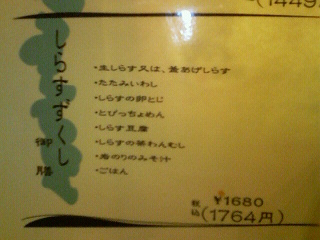 (1449
しらすずくし
御膳
・生しらす又は、釜あげしらす
・たたみいわし
・しらすの卵とじ
・とびっちょめん
・しらす豆腐
・しらすの茶わんむし
・岩のりのみそ汁
・ごはん
¥1680
税込(1764円)